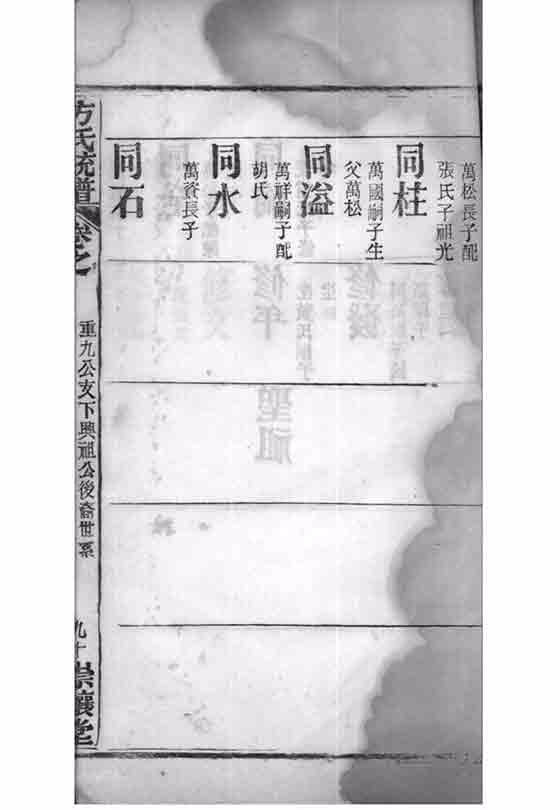 萬松長子配
張氏子祖光
同柱
萬國嗣子生
父萬松
同溢
萬祥嗣子配
胡氏
同水
萬資長子
同石
方氏統譜
卷之
重九公支下興祖公後裔世系
九十
崇讓堂